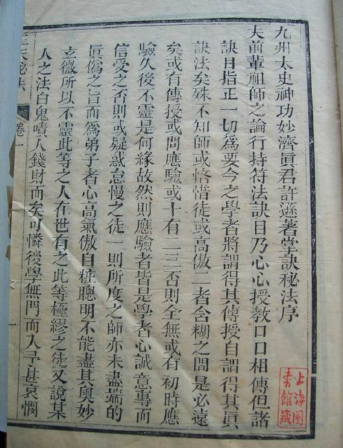 九州太史神功妙濟眞君許遜著掌訣秘法序
夫前輩祖師之論行持符法訣目乃心心授敎口口相傳但諸
訣目指正一切為要今之學者將謂得其傳授自謂得其眞
訣法矣殊不知師或悋惜徒或高傲二者含糊之間是必遠
矣或有傳授或問應驗或十有二三否則全無或有初時應
驗久後不靈是何緣故然則應驗者皆是學者心誠意專而
信受之否則或疑惑怠慢之徒一則所度之師亦未盡端的
眞偽之言而為弟子者心高氣傲自糚聰明不能盡其與妙
玄微所以不靈此等之人在世有之此等極繆之徒又說某
人之法白鬼嘖人錢財而矣可憐後學無門而入予甚哀憫
秘法
卷一
上海圖書館藏